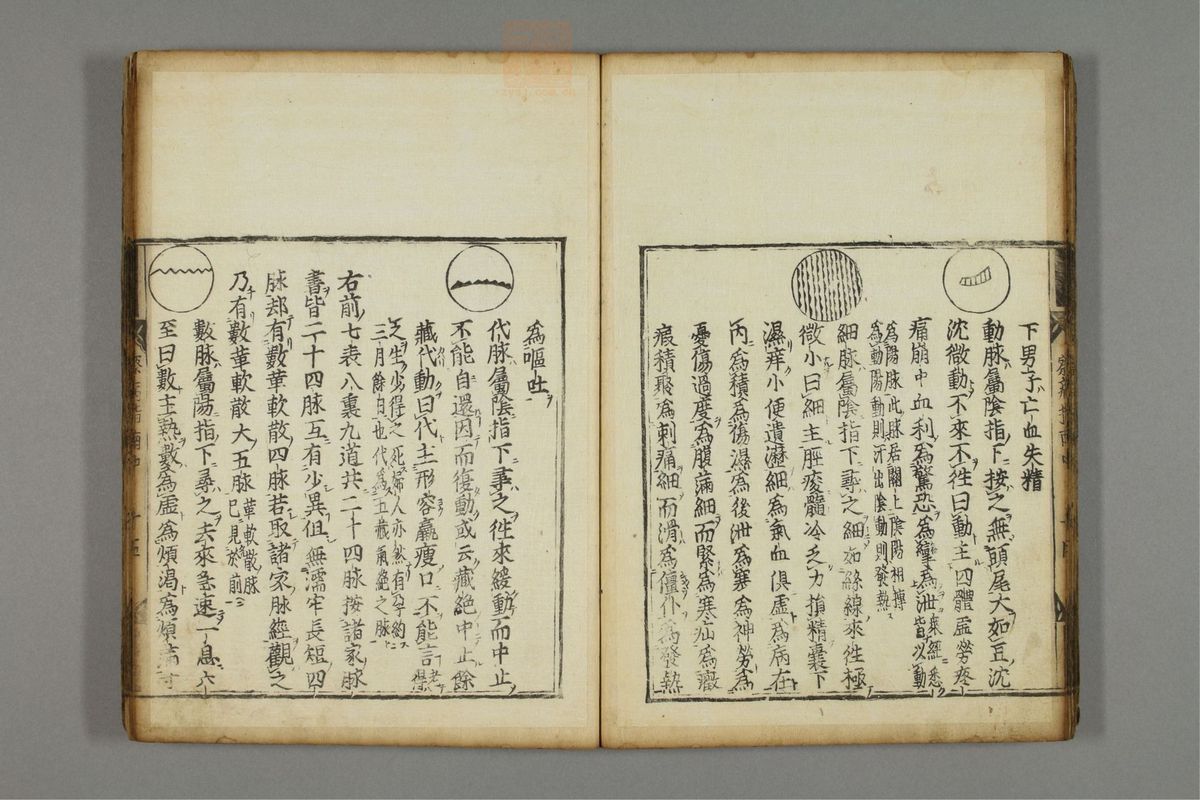 下男子亡血失精
動脉屬陰指下按之無頭尾大如豆沈
沈微動不來不往曰動主四體虛勞疼
痛崩中血利為驚恐為攣為泄
為陽脉此脉居關上陰陽相搏
為動陽動則汗出陰動則發熱
細脉屬陰指下尋之細如絲線來往極
微小曰細主脛痠髓冷乏力損精囊下
濕痒小便遺瀝細為氣血俱虛為病在
内為積為傷濕為後泄為寒為神勞為
憂傷過度為腹滿細而緊為寒疝為癥
瘕積聚為刺痛細而滑為僵仆為發熱
為嘔吐
代脉屬陰指下尋之往來緩動而中止
不能自還因而復動或云藏絕中止餘
藏代動曰代主形容羸瘦口不能言
乏生少得之死婦人亦然有孕約
三月餘日也代為五藏氣絕之脉
右前七表八裏九道共二十四脉按諸家脉
書皆二十四脉互有少異但無濡牢長短四
脉却有數革軟散四脉若取諸家脉經觀之
乃有數革軟散大五脉
革軟散脉
已見於前
數脉屬陽指下尋之去來急速一息六
至曰數主熱數為虛為煩渴為煩滿